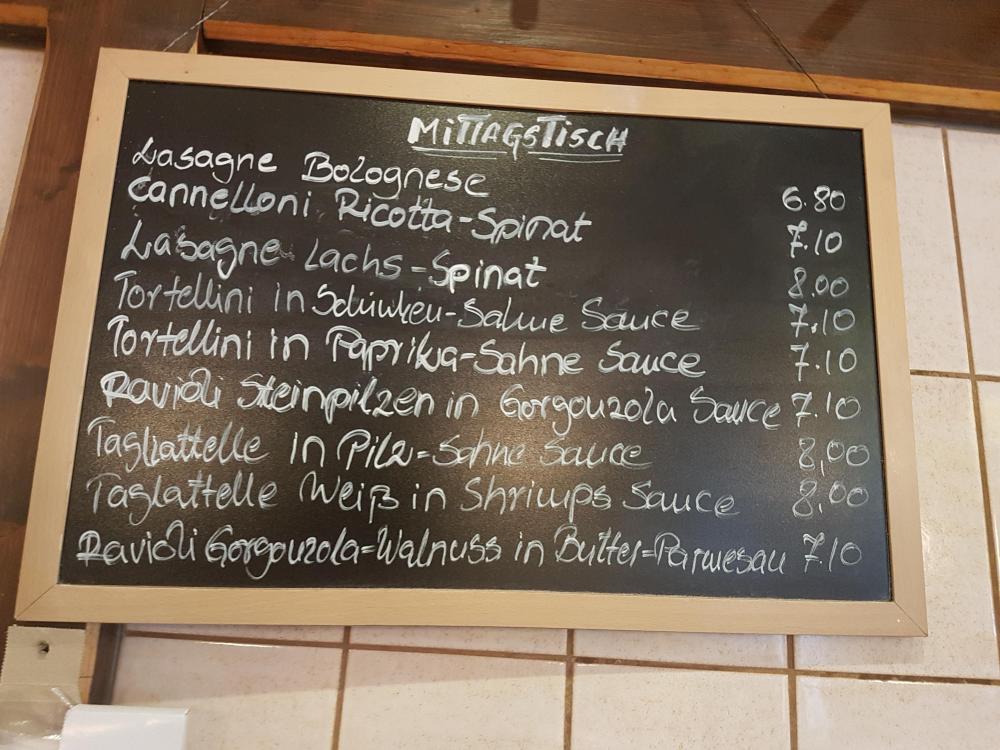 MiTTAGSTiSCH
Lasagne Bolognese 6.80
Cannelloni Ricotta-Spinat 7.10
Lasagne Lachs-Spinat 8.00
Tortellini in Schinken-Sahne Sauce 7.10
Tortellini in Paprika-Sahne Sauce 7.10
Ravioli Steinpilzen in Gorgonzola Sauce 7.10
Tagliattelle in Pilz-Sahne Sauce 8,00
Taglattelle Weiß in Shrimps Sauce 8,00
Ravioli Gorgonzola-Walnuss in Butter-Parmesan 7.10